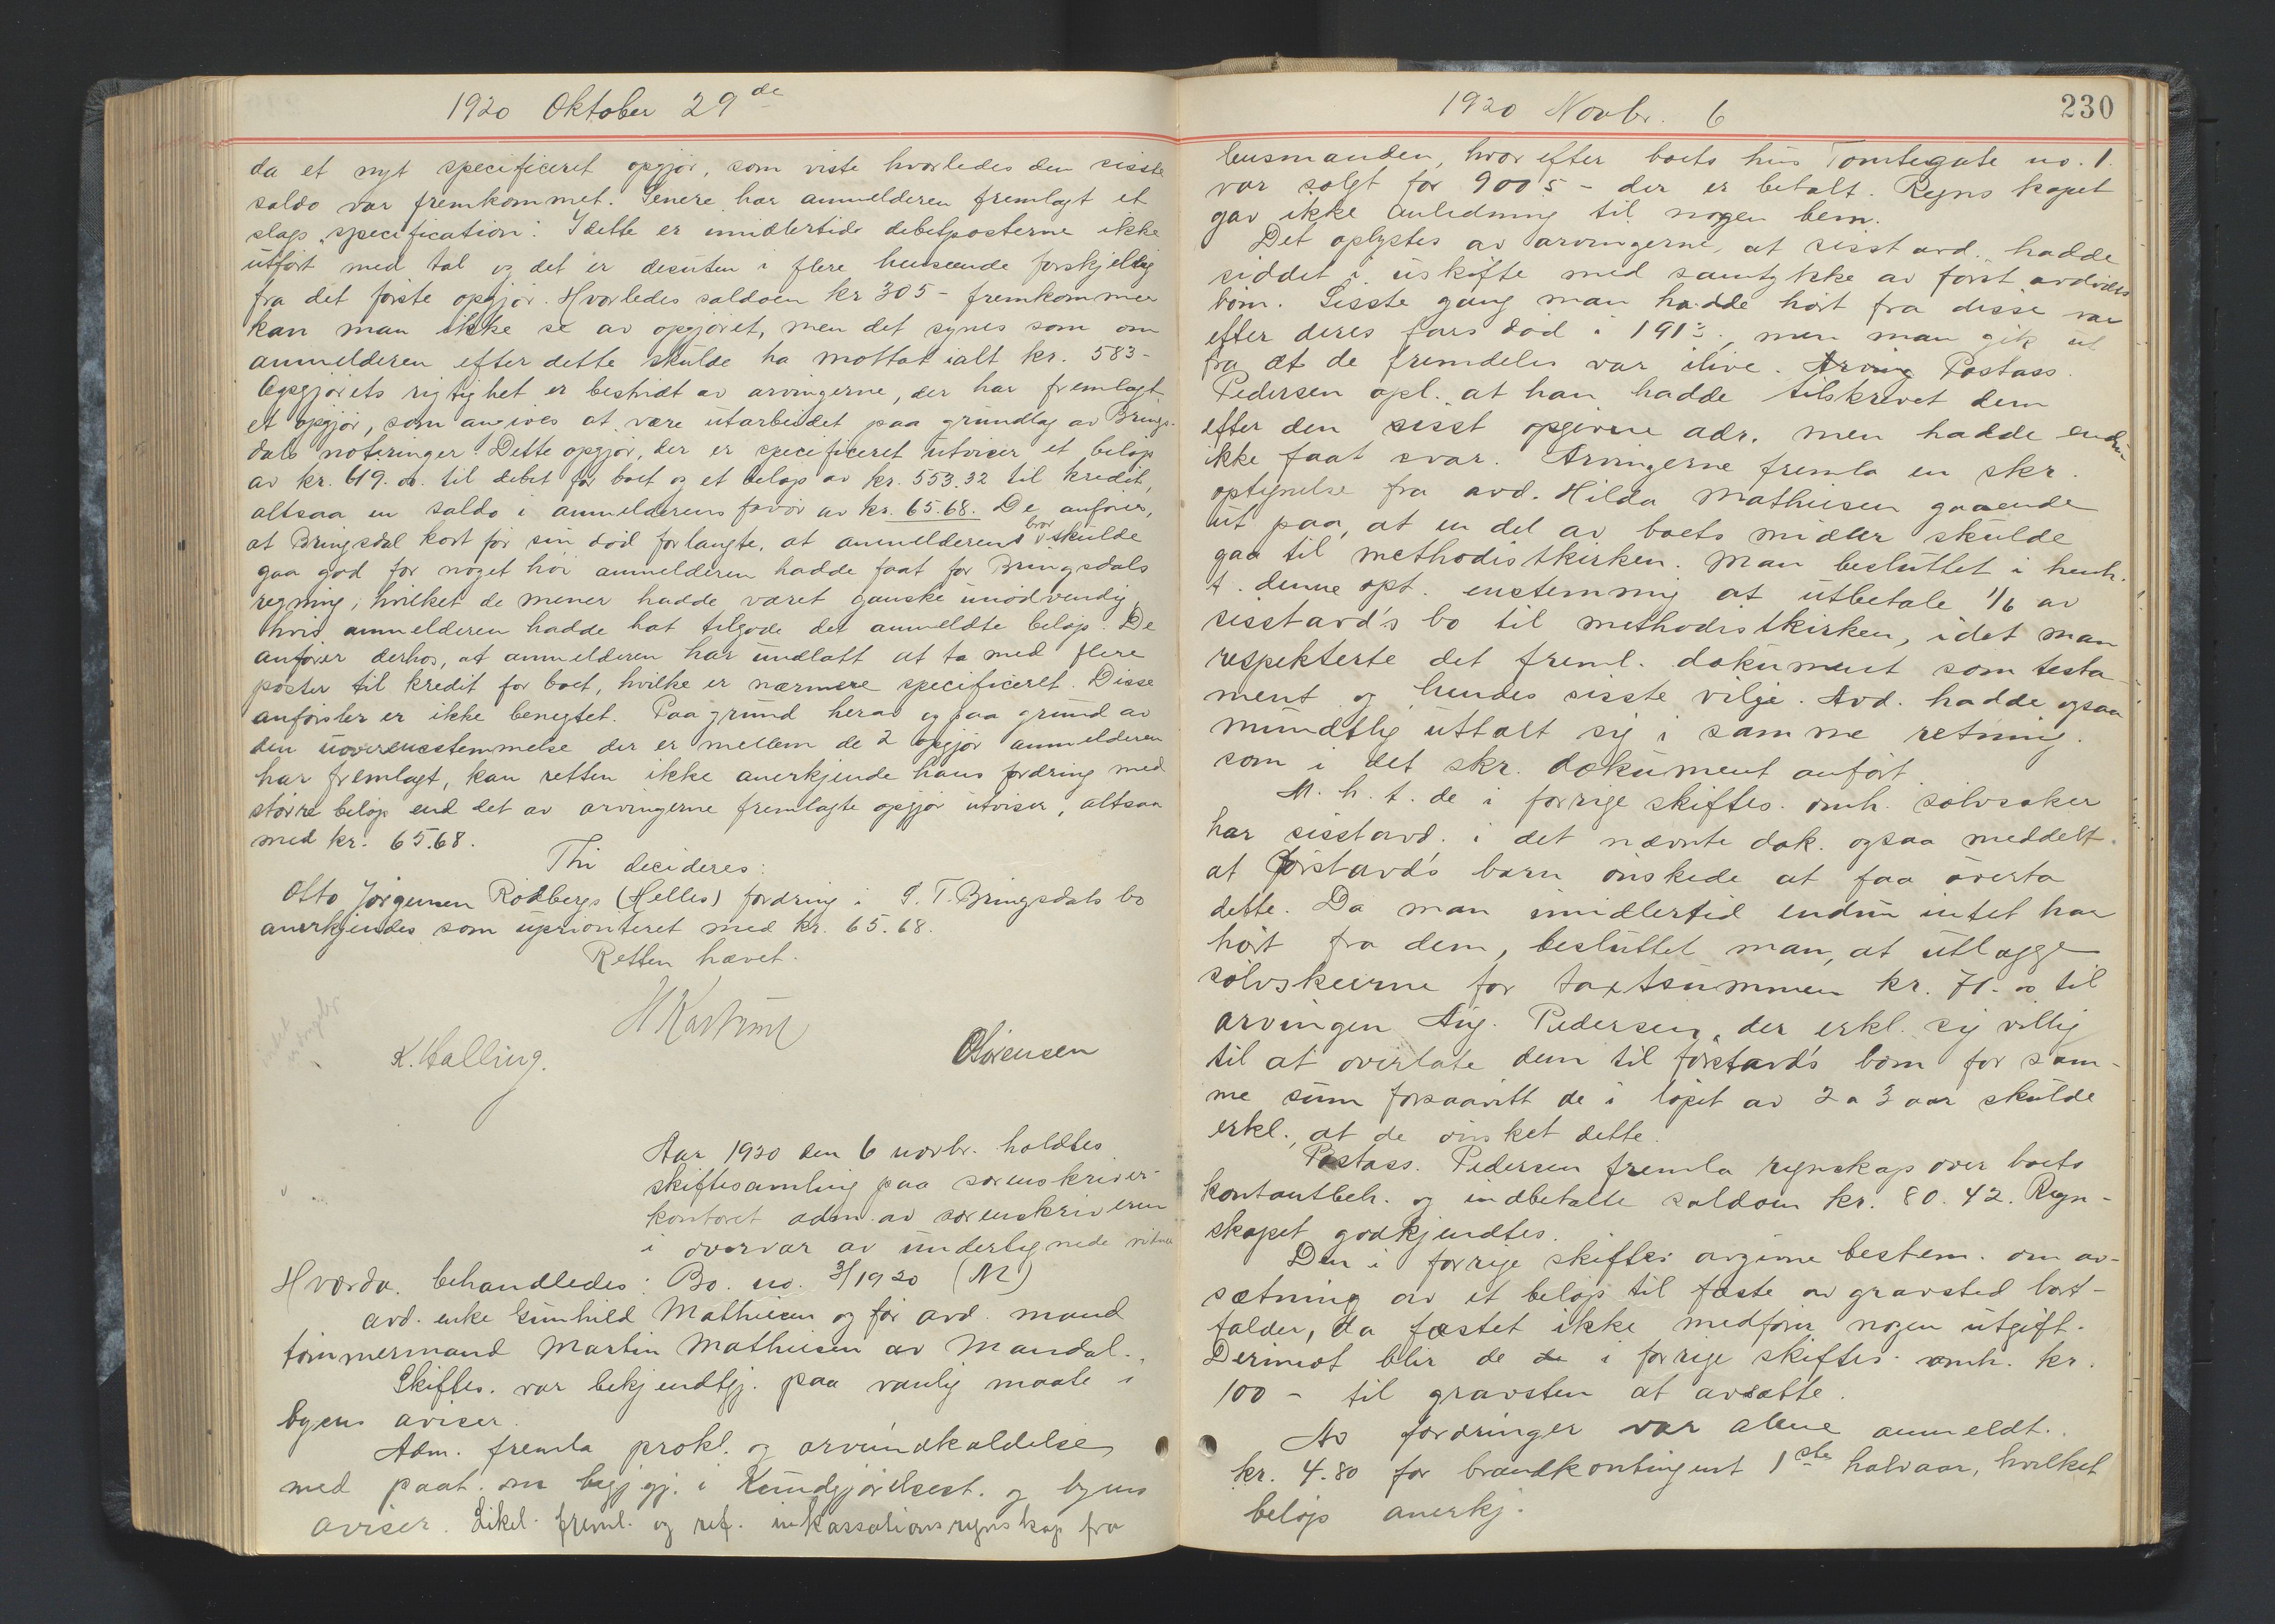 1920 Oktober 29de
da et nyt specificeret opgjør, som viste hvorledes den sisste
saldo var fremkommet. Senere har anmelderen fremlagt et
slags "specification". I dette er imidlertid debetposterne ikke
utført med tal og det er desuten i flere henseende forskjellig
fra det første opgjør. Hvorledes saldoen kr 305- fremkommer
kan man ikke se av opgjøret, men det synes som om
anmelderen efter dette skulde ha mottat ialt kr. 583-
Opgjørets rigtighet er bestridt av arvingerne, der har fremlagt
et opgjør, som angives at være utarbeidet paa grundlag av Brings-
dals noteringer. Dette opgjør, der er specificeret utviser et beløp
av kr. 619.00. til debet for boet og et beløp av kr. 553.32 til kredit,
altsaa en saldo i anmelderens favør av kr. 65.68. De anfører,
at Bringsdal kort før sin død forlangte, at anmelderens bror skulde
gaa god for noget høi anmelderen hadde faat for Bringsdals
regning, hvilket de mener hadde været ganske unødvendig
hvis anmelderen hadde hat tilgode det anmeldte beløp. De
anfører derhos, at anmelderen har undlatt at ta med flere
poster til kredit for boet, hvilke er nærmere specificeret. Disse
anførsler er ikke benegtet. Paa grund herav og paa grund av
den uoverensstemmelse der er mellem de 2 opgjør anmelderen
har fremlagt, kan retten ikke anerkjende hans fordring med
større beløp end det av arvingerne fremlagte opgjør utviser, altsaa
med kr. 65.68.
Thi decideres:
Otto Jørgensen Rødbergs (Helles) fordring i S. T. Bringsdals bo
anerkjendes som uprioriteret med kr. 65.68.
Retten hævet.
K. Halling. OSørensen
Aar 1920 den 6 novbr. holdtes
skiftesamling paa sorenskriver-
kontoret adm. av sorenskriveren
i overvær av undertegnede vitne
Hvorda. behandledes: Bo. no. 3/1920 (M)
avd. enke Gunhild Mathisen og før avd. mand
tømmermand Martin Mathisen av Mandal.
Skiftes. var bekjendtgj. paa vanlig maate i
byens aviser.
Adm. fremla prokl. og arveindkaldelse
med paat. om begj gj. i Kundgjørelsest. og byens
aviser. Likel. freml. og ref. inkassationsregnskap fra
1920 Novbr. 6
230
lensmanden, hvorefter boets hus Tomtegate no. 1.
var solgt for 9005- der er betalt. Regnskapet
gav ikke anledning til nogen bem.
Det oplystes av arvingerne, at sisst avd. hadde
siddet i uskifte med samtykke av først avdødes
børn. Sisste gang man hadde hørt fra disse var
efter deres fars død i 1913, men man gik ut
fra at de fremdeles var ilive. Arving Postass.
Pedersen opl. at han hadde tilskrevet dem
efter den sisst opgivne adr. men hadde endnu
ikke faat svar. Arvingerne fremla en skr.
optegnelse fra avd. Hilda Mathiesen gaaende
ut paa, at en del av boets midler skulde
gaa til methodistkirken. Man besluttet i henh.
t. denne opt. enstemmig at utbetale 1/6 av
sisstavd's bo til methodistkirken, idet man
respekterte det freml. dokument som testa-
ment og hendes sisste vilje. Avd. hadde ogsaa
mundtlig uttalt sig i samme retning.
som i det skr. dokument anført.
M. h. t. de i forrige skiftes. omh. sølvsaker
har sisstavd. i det nævnte dok. ogsaa meddelt
at førstavd's barn ønskede at faa overta
dette. Da man imidlertid endnu intet har
hørt fra dem, besluttet man, at utlægge
sølvskeerne for taxtsummen kr. 71.00 til
arvingen Aug. Pedersen, der erkl. sig villig
til at overlate dem til førstavd's børn for sam-
me sum forsaavitt de i løpet av 2 a 3 aar skulde
erkl., at de ønsket dette.
Postass. Pedersen fremla regnskap over boets
kontantbeh. og indbetalte saldoen kr. 80.42. Regn-
skapet godkjendtes.
Den i forrige skiftes. avgivne bestem. om av-
sætning av et beløp til fæste av gravsted bort-
falder, da fæstet ikke medfører nogen utgift.
Derimot blir de i forrige skiftes. omh. kr.
100- til gravsten at avsætte.
Av fordringer var alene anmeldt.
kr. 4.80 for brandkontingent 1ste halvaar, hvilket
beløp anerkj.